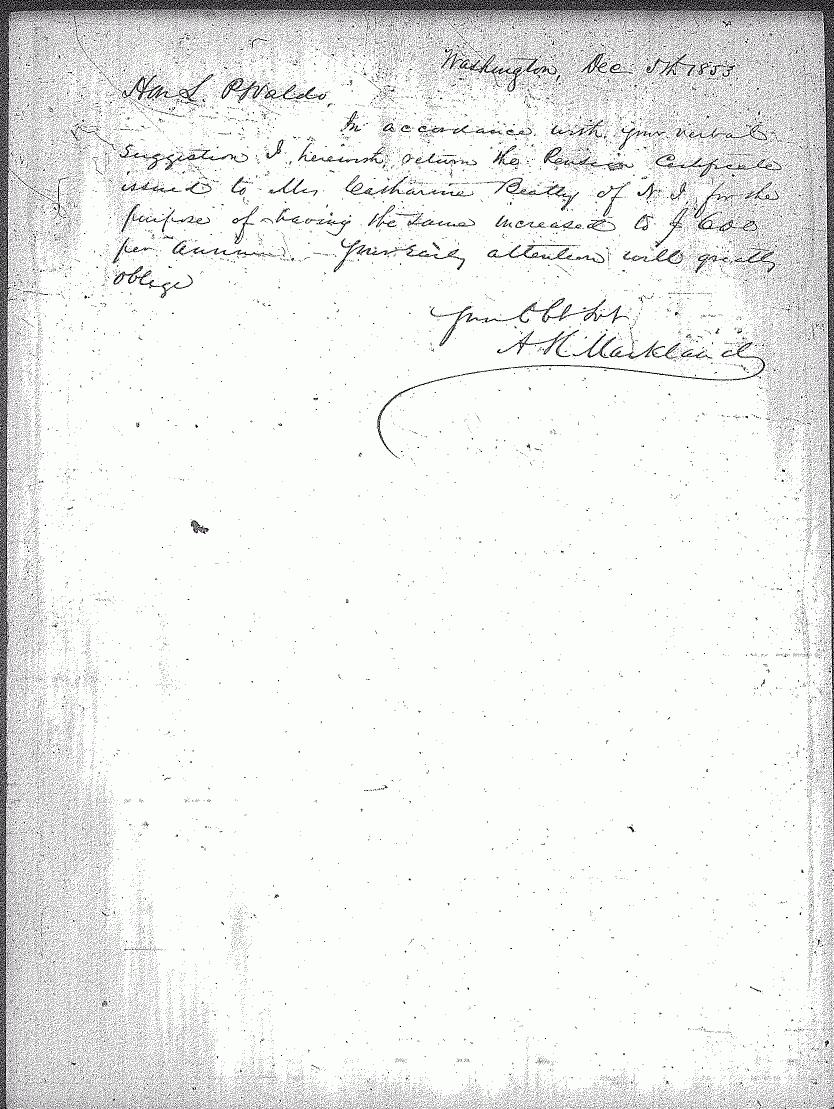 Washington, Dec 5th 1853
Hon L. P. Waldo,
In accordance with your verbal
suggestion I herewith return the Pension Certificate
issued to Mrs Catharine Beatty of N. J. for the
purpose of having the same increased to $ 600
per annum. Your early attention will greatly
oblige
Your Obt Svt
A H Markland